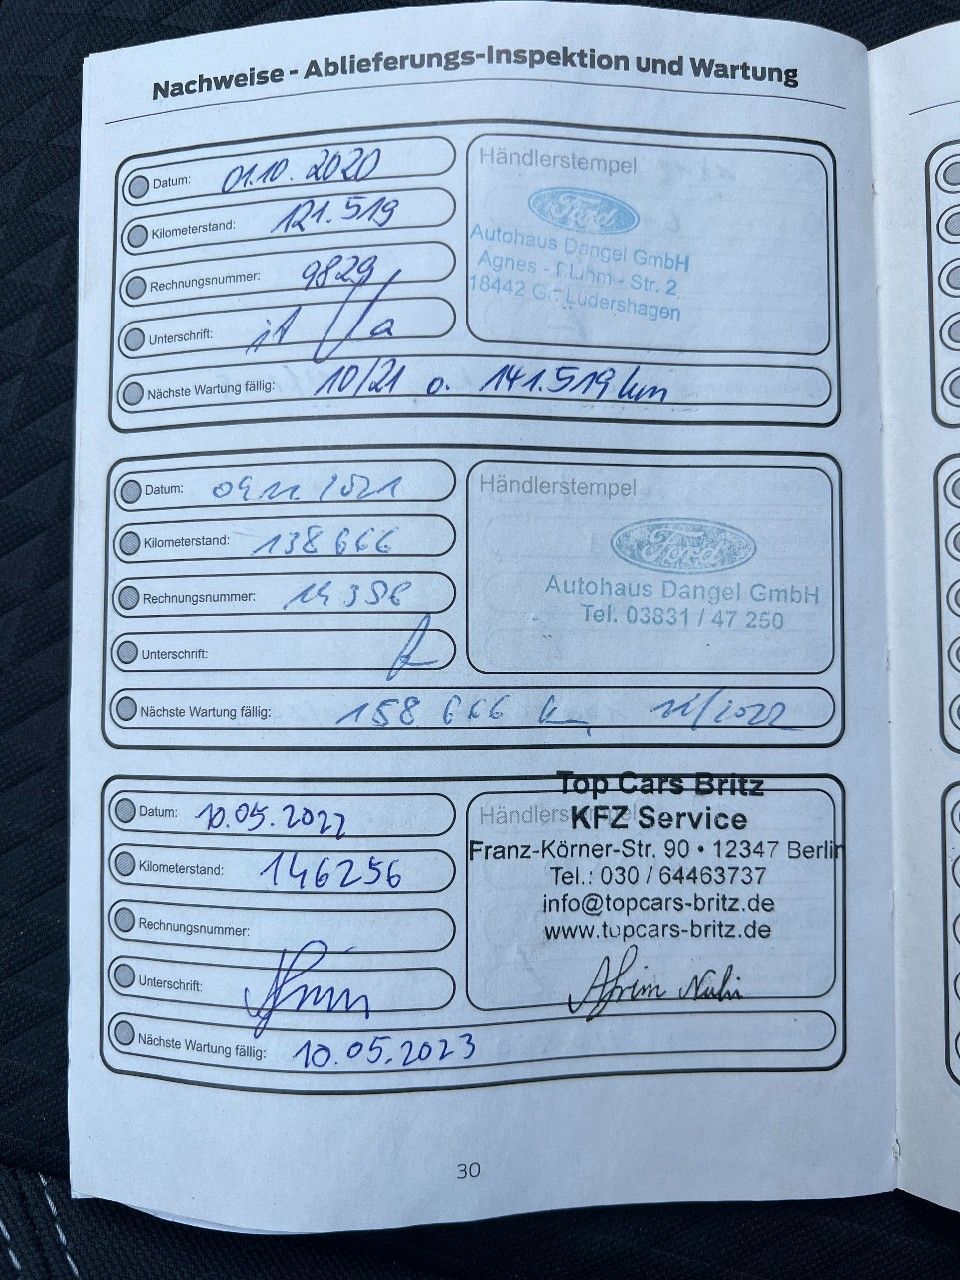 Nachweise - Ablieferungs-Inspektion und Wartung
Datum: 01.10.2020
Kilometerstand: 121.519
Rechnungsnummer: 9829
Unterschrift:
Nächste Wartung fällig: 10/21 o. 141.519 km
Händlerstempel
Ford
Autohaus Dangel GmbH
Agnes - Bluhm - Str. 2
18442 Gr. Lüdershagen
Datum: 09.11.2021
Kilometerstand: 138 666
Rechnungsnummer:
Unterschrift:
Nächste Wartung fällig: 158 666 km 11/2022
Händlerstempel
Ford
Autohaus Dangel GmbH
Tel. 03831 / 47 250
Datum: 10.05.2022
Kilometerstand: 146256
Rechnungsnummer:
Unterschrift:
Nächste Wartung fällig: 10.05.2023
Händlerstempel
Top Cars Britz
KFZ Service
Franz-Körner-Str. 90 • 12347 Berlin
Tel.: 030 / 64463737
info@topcars-britz.de
www.topcars-britz.de
30